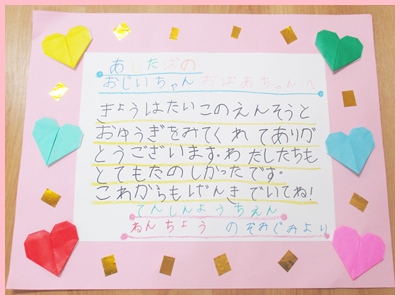 あしたばの
おじいちゃん おばあちゃんへ
きょうはたいこのえんそうと
おゆうぎをみてくれてありが
とうございます。わたしたちも
とてもたのしかったです。
これからもげんきでいてね!
てんしんようちえん
ねんちょう のぞみぐみより